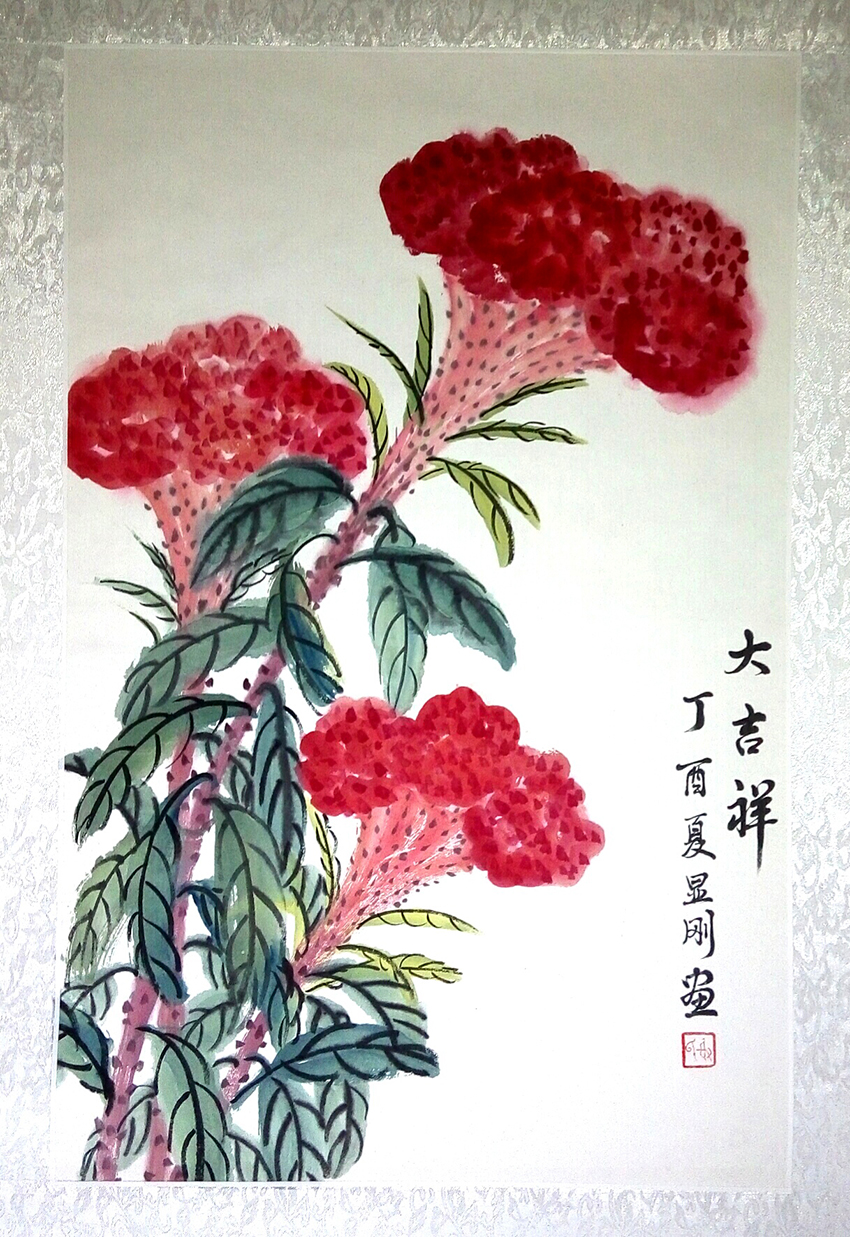 大吉祥
丁酉夏显刚画